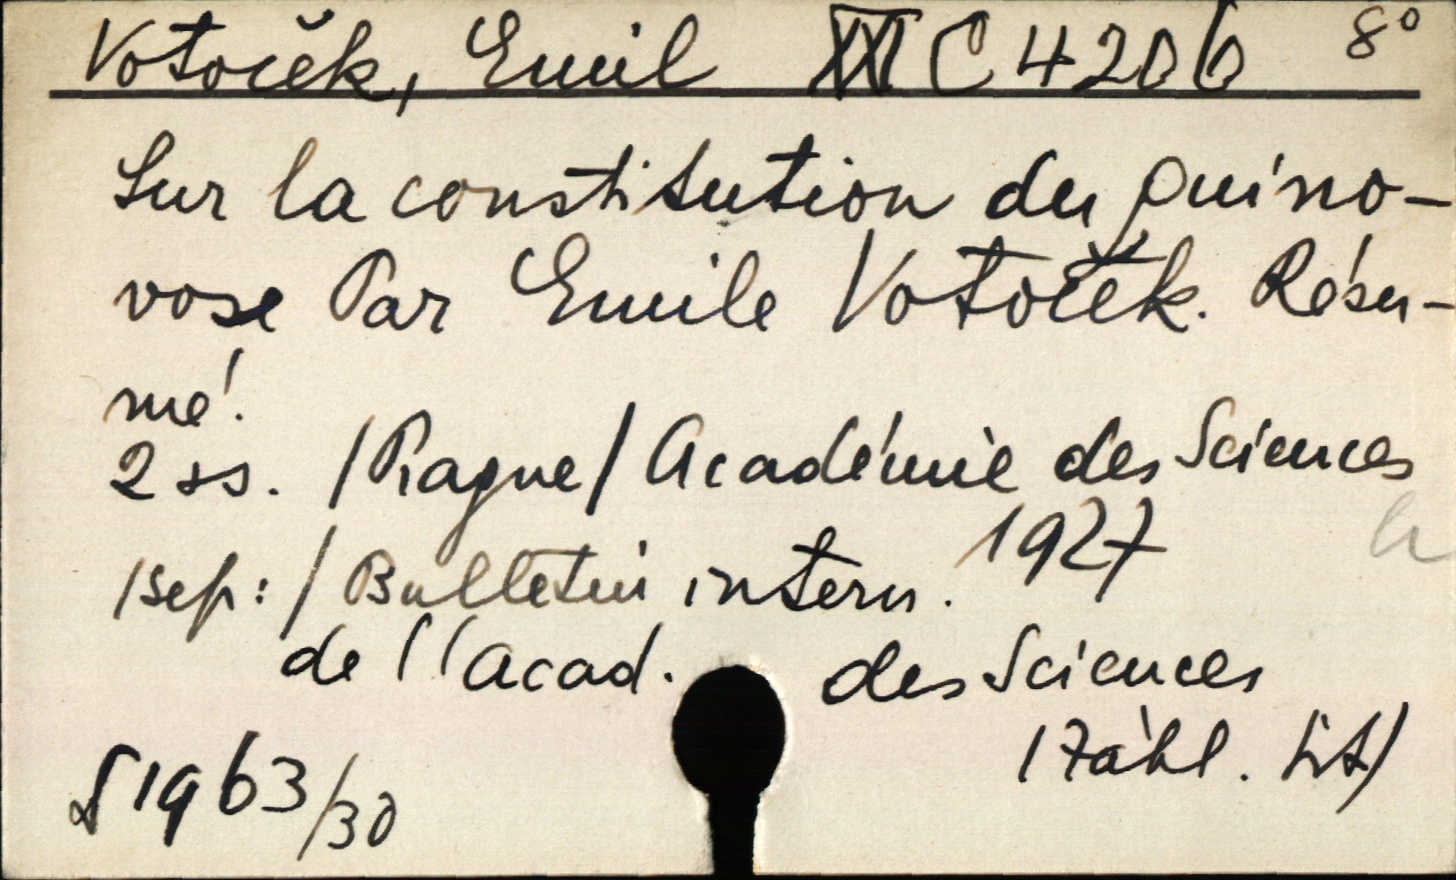 Votoček, Emil XXI C 4206 8°
Sur la constitution du quino-
vose Par Emile Votoček. Résu-
mé.
2 ss. /Prague/ Académie des Sciences
1927
/sep: / Bulletin intern.
de l'Acad. des Sciences
/Záhl. list/
§ 1963/30